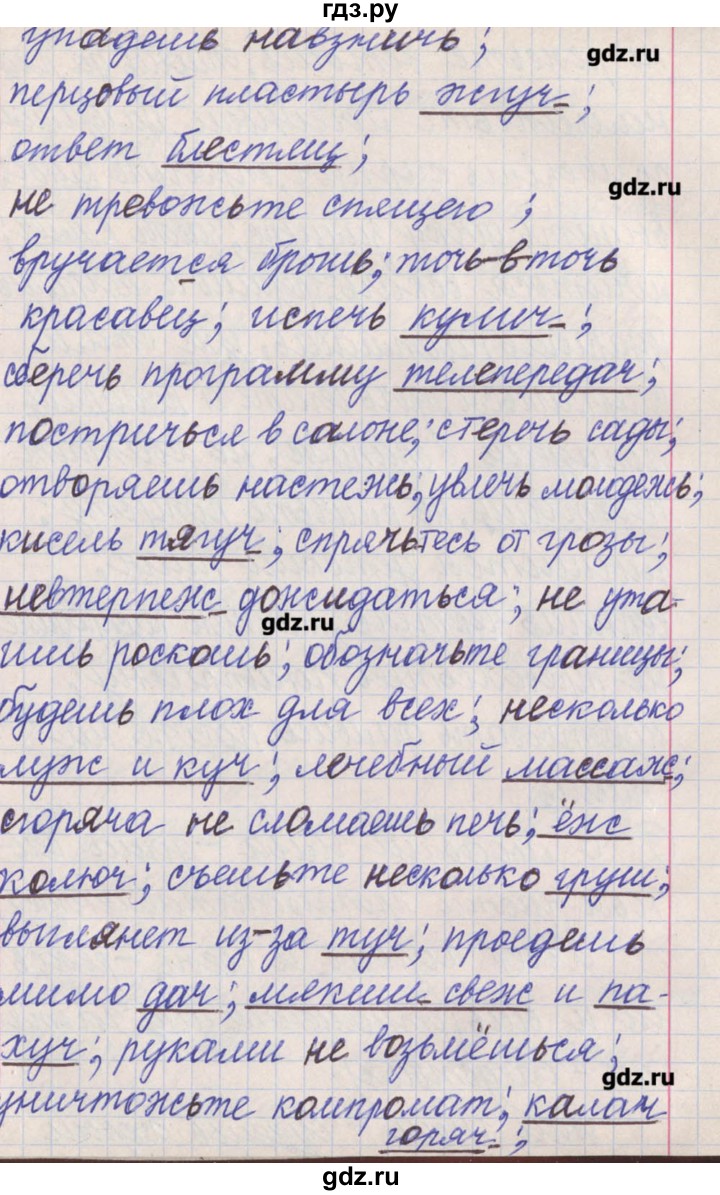 гдз.ру
упадешь навзничь;
gdz.ru
перцовый пластырь жгуч;
ответ блестящ;
gdz.ru
не тревожьте спящего;
вручается брошь; точь-в-точь
красавец; испечь кулич;
сберечь программу телепередач;
постричься в салоне; стеречь сады;
отворяешь настежь; увлечь молодежь;
кисель тягуч; спрячьтесь от грозы;
невтерпеж дожидаться; не ута-
gdz.ru
ишь роскошь; обозначьте границы;
будешь плох для всех; несколько
луж и куч; лечебный массаж;
сгоряча не сломаешь печь; ёж
колюч; съешьте несколько груш;
выглянет из-за туч; проедешь
мимо дач; мякиш свеж и па-
хуч; руками не возьмёшься;
gdz.ru
уничтожьте компромат; калач
горяч;
gdz.ru